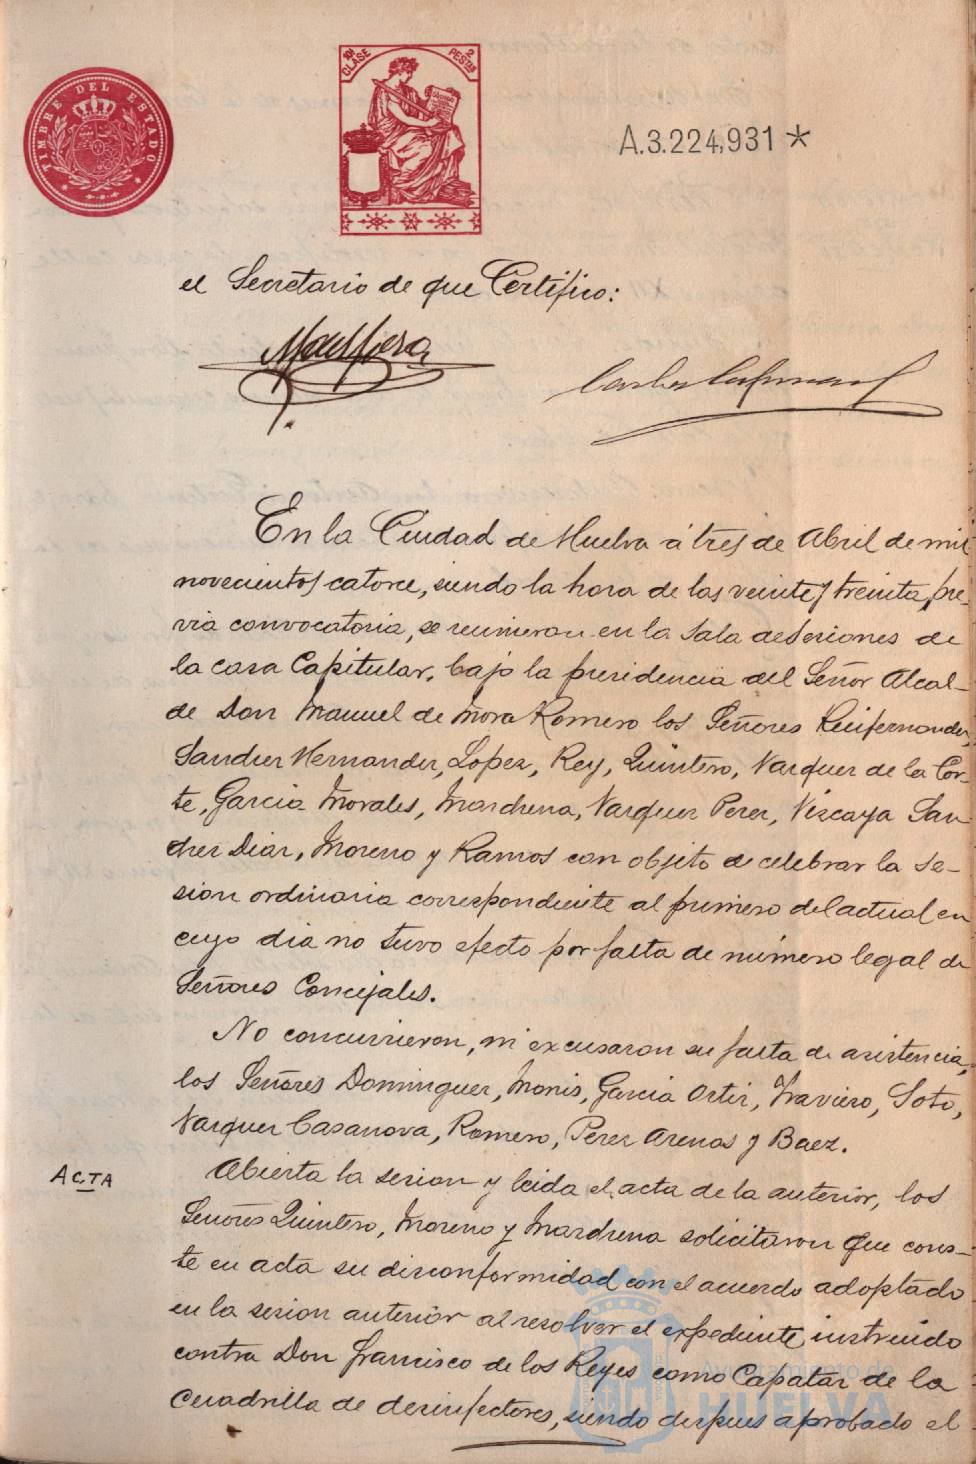 TIMBRE DEL ESTADO
10ª CLASE
2 PESTAS
A.3.224,931 *
el Secretario de que Certifico:
En la Ciudad de Huelva á tres de Abril de mil
novecientos catorce, siendo la hora de las veinte y treinta, pre-
via convocatoria, se reunieron en la Sala de Sesiones de
la casa Capitular, bajo la presidencia del Señor Alcal-
de Don Manuel de Mora Romero los Señores Ruifernandez,
Sanchez Hernandez, Lopez, Rey, Quintero, Vazquez de la Cor-
te, Garcia Morales, Marchena, Vazquez Perez, Vizcaya San
chez Diaz, Moreno y Ramos con objeto de celebrar la se-
sion ordinaria correspondiente al primero del actual en
cuyo dia no tuvo efecto por falta de número legal de
Señores Concejales.
No concurrieron, ni excusaron su falta de asistencia,
los Señores Dominguez, Monis, Garcia Ortiz, Traviero, Soto,
Vazquez Casanova, Romero, Perez Arenas y Baez.
ACTA
Abierta la sesion y leida el acta de la anterior, los
Señores Quintero, Moreno y Marchena solicitaron que cons-
te en acta su disconformidad con el acuerdo adoptado
en la sesion anterior al resolver el expediente instruido
contra Don Francisco de los Reyes como Capataz de la
Cuadrilla de desinfectores, siendo despues aprobado el
Ayuntamiento de
HUELVA